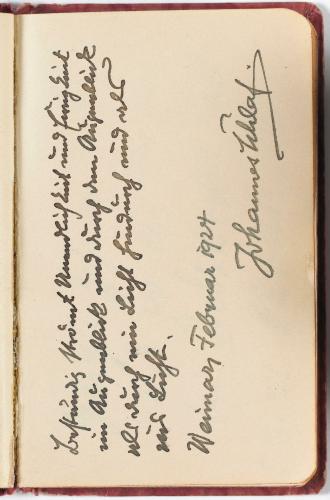 Beständig strömt Unendlichkeit und Ewigkeit
im Augenblick und durch den Augenblick
als durch ein Licht hindurch und als
ins Licht.
Weimar, Februar 1924
Johannes Schlaf.